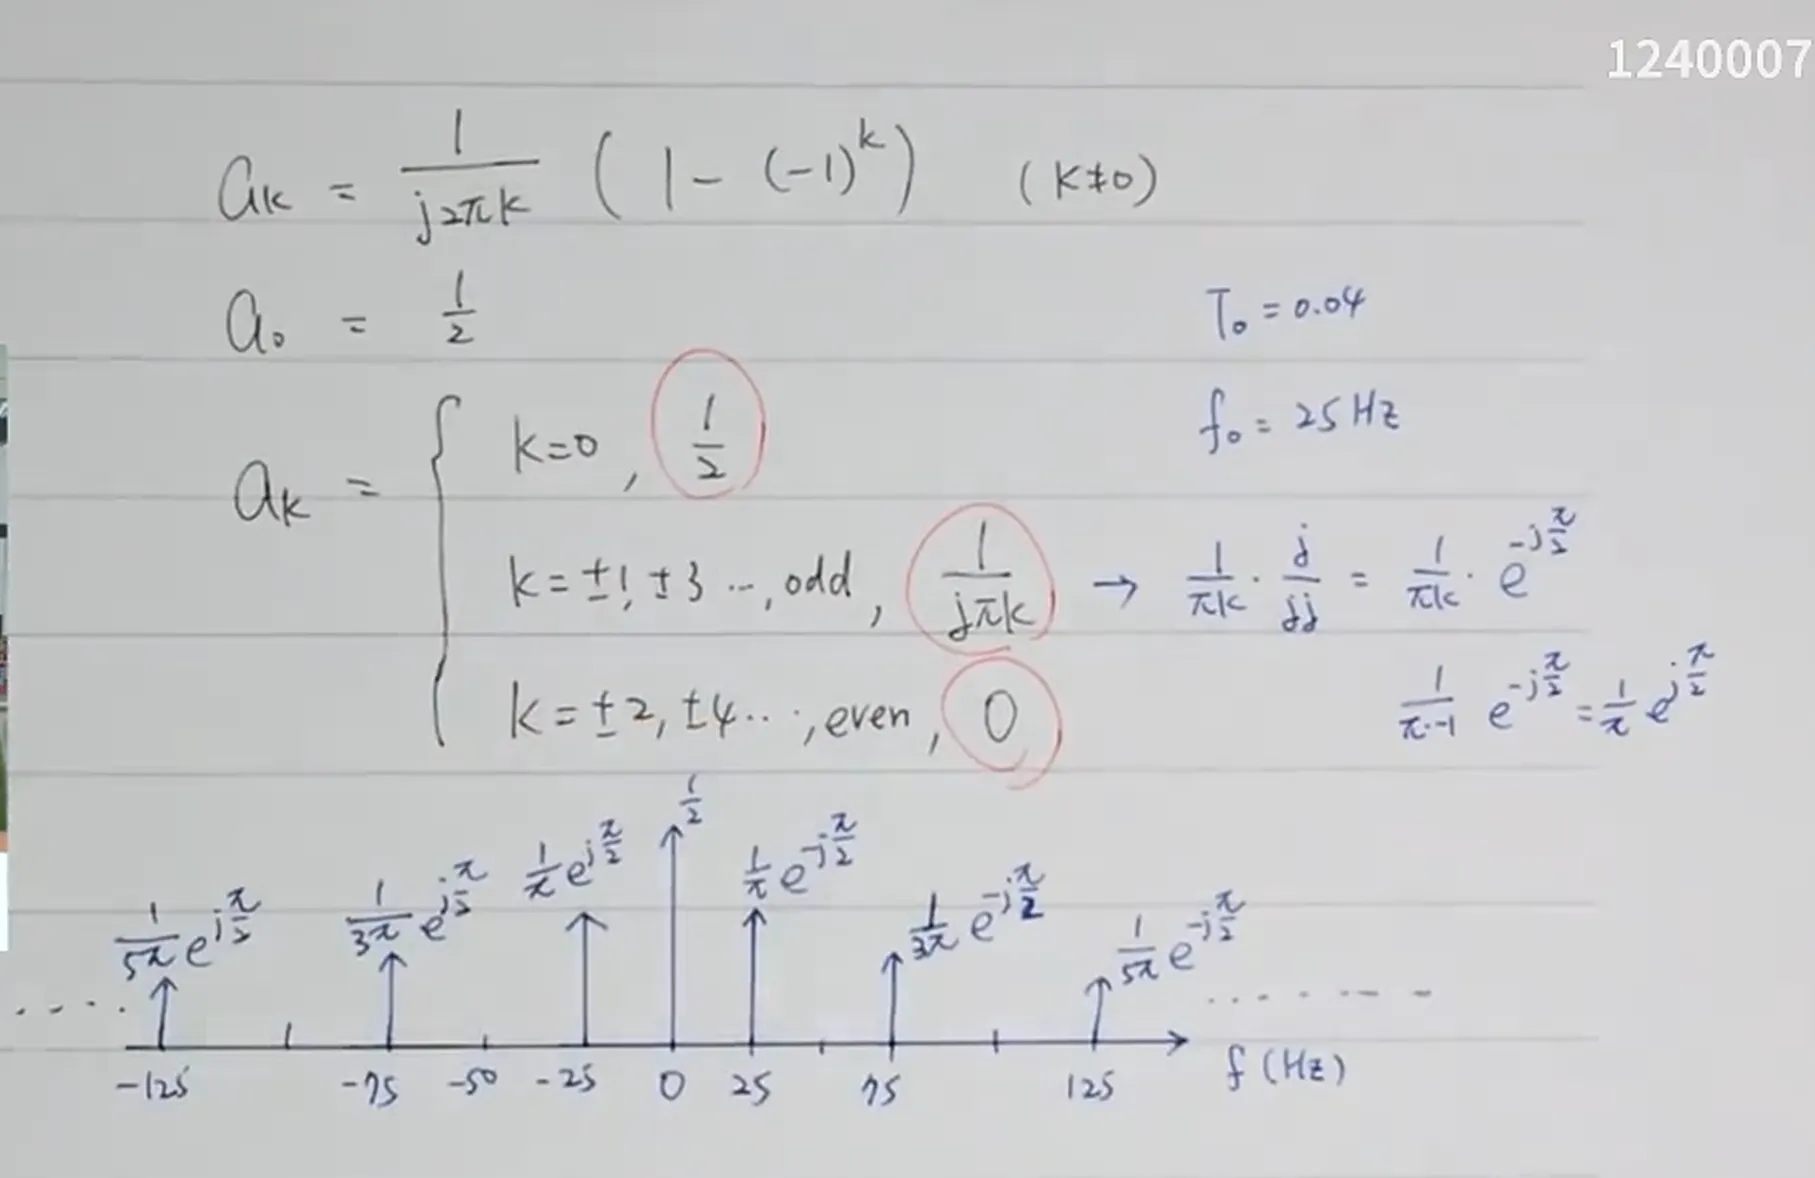 1240007
a_k = 1/(j2πk) ( 1 - (-1)^k ) (k≠0)
a_0 = 1/2
T_0 = 0.04
f_0 = 25 Hz
a_k = { k=0, 1/2
k = ±1, ±3 ..., odd, 1/(jπk) → 1/(πk) · j/(jj) = 1/(πk) · e^(-jπ/2)
k = ±2, ±4 ..., even, 0
1/(π·-1) e^(-jπ/2) = 1/π e^(jπ/2)
1/(5π) e^(jπ/2) 1/(3π) e^(jπ/2) 1/π e^(jπ/2) 1/2 1/π e^(-jπ/2) 1/(3π) e^(-jπ/2) 1/(5π) e^(-jπ/2)
-125 -75 -50 -25 0 25 75 125 f (Hz)